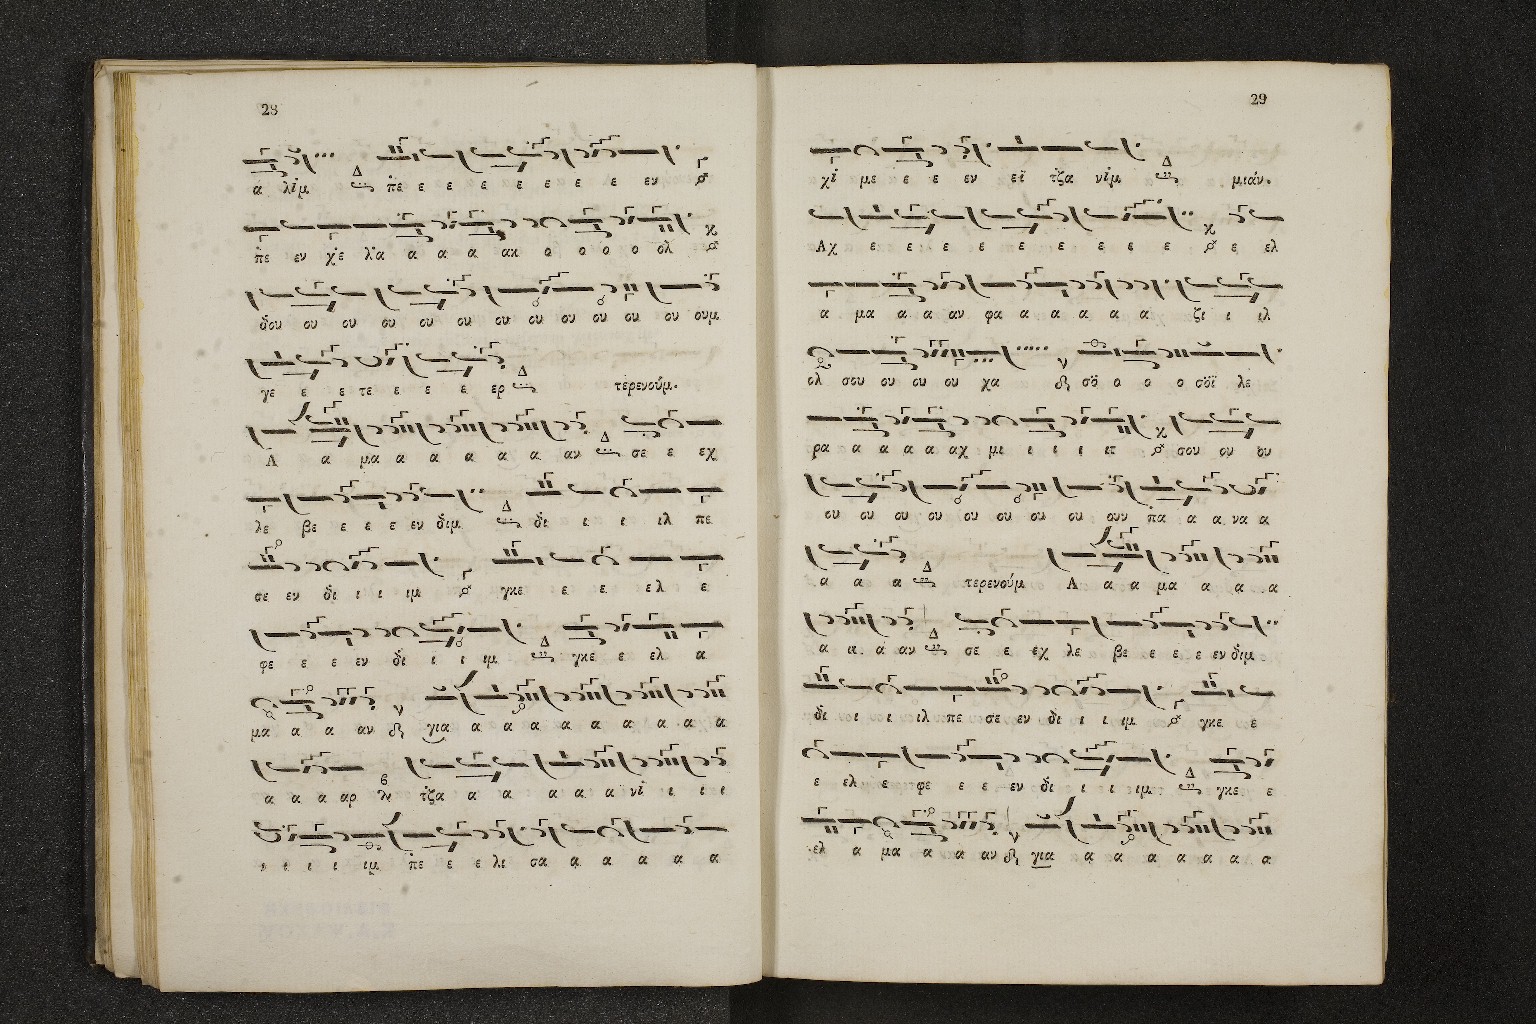 28
α λὶμ πε ε ε ε ε ε ε ε εν
πε εν χὲ λα α α α ακ ο ο ο ο ολ
δου ου ου ου ου ου ου ου ου ου ου ου ουμ
γε ε ε τε ε ε ε ερ τερενούμ.
Α α μα α α α α α αν σε ε εχ
λε βε ε ε ε εν διμ δι ι ι ιλ πε
σε εν δι ι ι ιμ γκε ε ε ελ ε
φε ε ε εν δι ι ι ιμ γκε ε ελ α
μα α α αν για α α α α α α α α α
α α α αρ τζα α α α α α νὶ ι ι ι
ι ι ι ι ιμ πε ε ε λι σα α α α α α
29
χὶ με ε ε εν εὶ τζα νὶμ μιάν.
Αχ ε ε ε ε ε ε ε ε ε ε ελ
α μα α α αν φα α α α α α ζι ι ιλ
ολ σου ου ου ου χα σο ο ο ο σοϊ λε
ρα α α α α αχ μι ι ι ι ιτ σου ου ου
ου ου ου ου ου ου ου ου ουν πα α α να α
α α α τερενούμ Α α α μα α α α
α α α αν σε ε εχ λε βε ε ε ε εν διμ
δι ι ι ιλ πε σε εν δι ι ι ιμ γκε ε
ε ελ ε φε ε ε εν δι ι ι ιμ γκε ε
ελ α μα α α αν για α α α α α α α